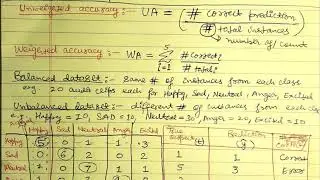 Unweighted accuracy :- UA = ( # correct prediction / # total instances )
number / count
Weighted accuracy :- WA = 5 Σ i=1 # correct i / # total i
Balanced dataset :- same # of instances from each class
eg. 20 audio clips each for Happy, Sad, Neutral, Anger, Excited
Unbalanced dataset :- different # of instances from each class
Happy = 10, SAD = 10, Neutral = 30, Anger = 20, Excited = 10
Happy Sad Neutral Anger Excited True Prediction
Happy 5 0 1 1 3
Sad 0 6 2 0 2 1 1 Correct
Neutral 1 0 7 1 1 5 3 Error